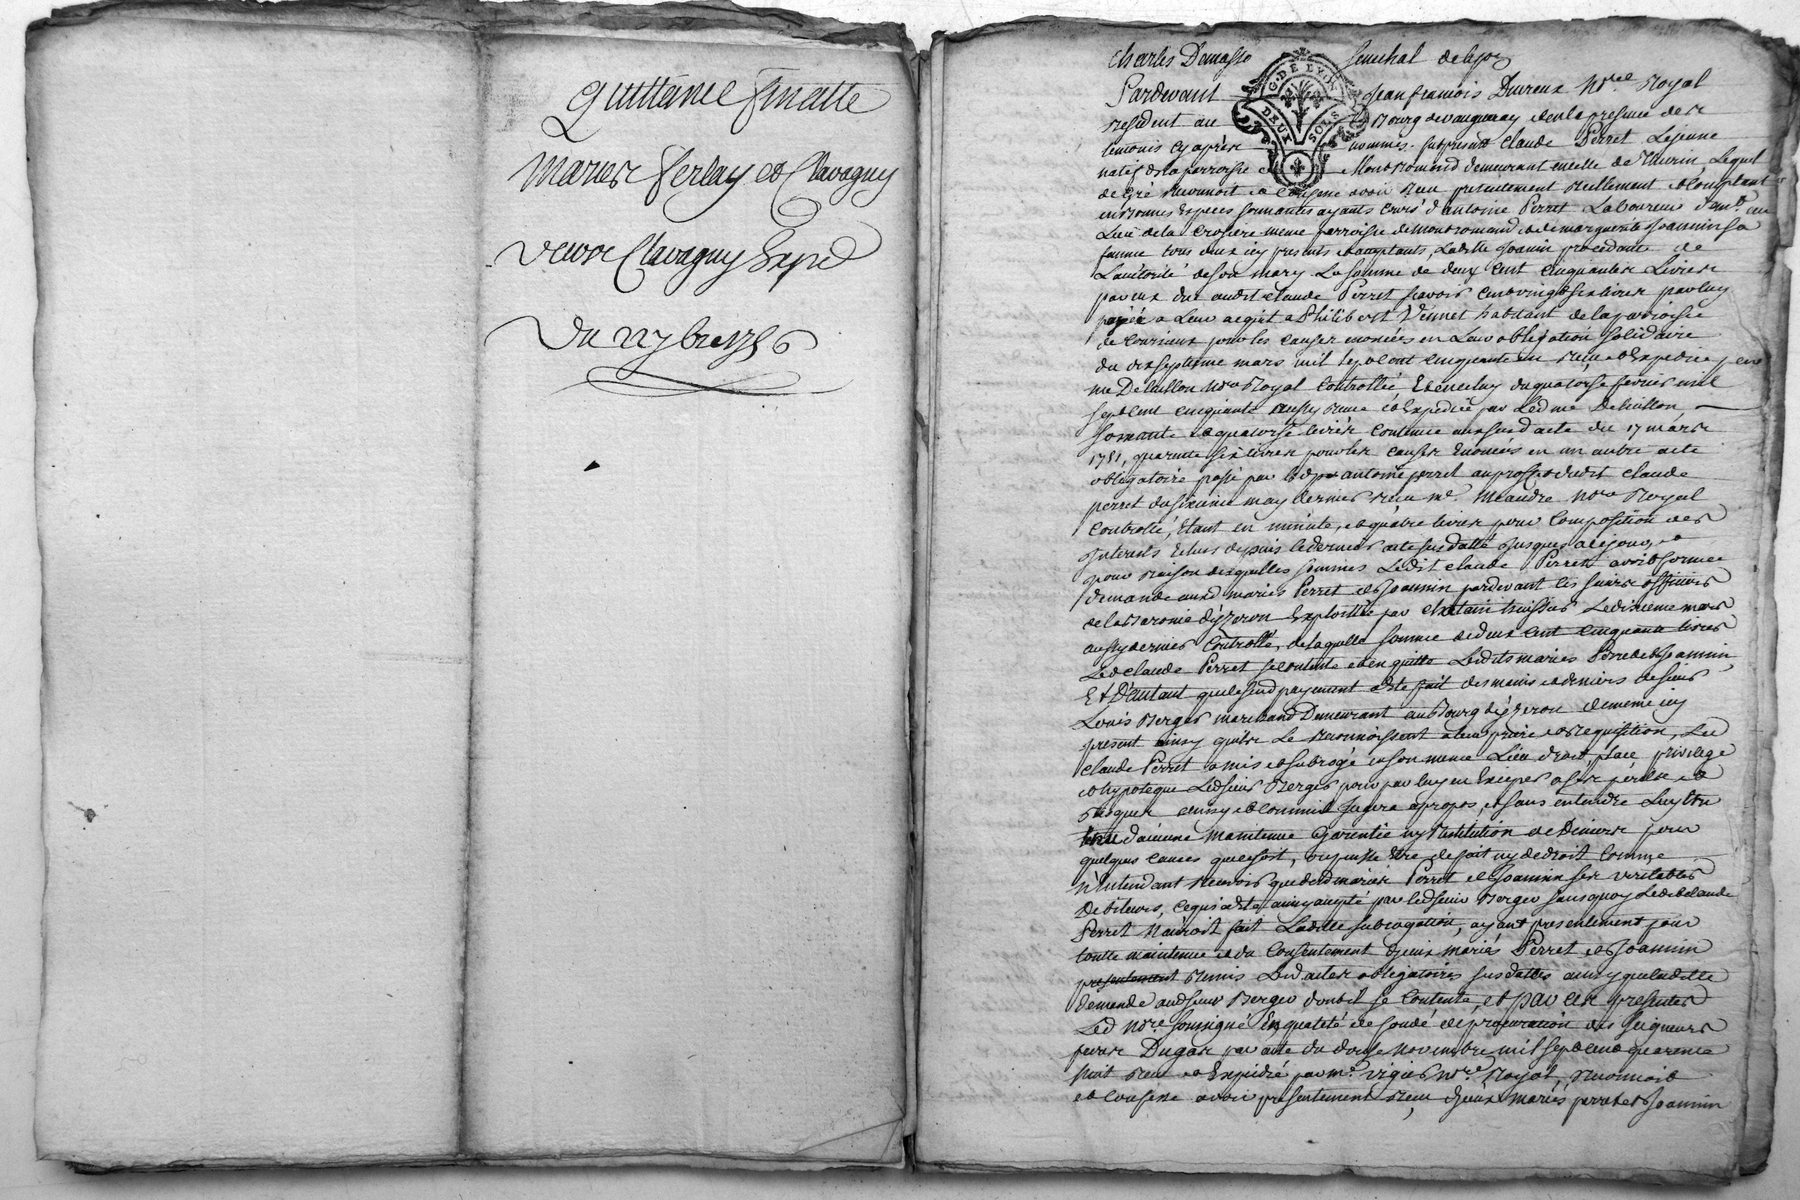 quittance finalle
Mariés ferlay et Clavagny
veuve Clavagny Expé
Du 22 xbre 1756
Charles Demasso senechal de lyon
G. DE LYON
DEUX SOLS
Pardevant Jean francois Dureux No.re Royal
resident au Bourg de vaugneray et en la presence des
temoins cy après nommés. fut present Claude Perret Lejeune
natif de la parroisse de Montromand demeurant en celle de Thurin Lequel
de gré reconnoit et Confesse avoir Reçu presentement reellement et Comptant
en bonnes Especes sonnantes ayants Cours d'antoine Perret Laboureur
Lieu de la Crosiere meme parroisse de Montromand et de marguerite Joannin sa
femme tous deux icy presents et acceptants, Ladite Joannin procedante de
L'autorité de son mary La somme de deux Cent Cinquante Livres
par eux due audit Claude Perret scavoir Cent vingt six livres par luy
payée a Leur acquit a Philibert Vennet habitant de la parroisse
de Courzieux pour les causes enoncées en Leur obligation solidaire
du dix septieme mars mil sept Cent Cinquante un reçue et Expediée par
me Debaillon No.re Royal Controllée Et en celuy du quatorse fevrier mil
sept Cent Cinquante aussy reçue et Expediée par Led me Debaillon,
soixante et quatorse livres Contenue aux susd acte du 17 mars
1751, quarante six livres pour les causes Enoncées en un autre acte
obligatoire passé par led antoine perret au proffit dudit Claude
perret du sixieme may dernier reçu me. Meandre No.re Royal
Controllé, Etant en minute, et quatre livres pour Composition des
Interets Echus depuis le dernier acte susdatté Jusques a ce jour, et
pour raison desquelles sommes Ledit Claude Perret avoit formée
demande auxd mariés Perret et Joannin pardevant les sieurs officiers
de la Baronie d'yzeron Exploittée par Chatain huissier Le dixieme mars
aussy dernier Controllé, de laquelle somme de deux cent cinquante livres
Led Claude Perret se contente et en quitte Lesdits mariés Perret et Joannin
Et D'autant que le susd payement a été fait des mains et deniers de sieur
Louis Berger marchand Demeurant au Bourg d'yzeron de meme icy
present ainsy qu'ils Le reconnoissent a leur priere et requisition, Led
Claude Perret a mis et subrogé en son meme Lieu droit, place privilege
et hypoteque Led sieur Berger pour par luy en Exciper a ses perils et
risques ainsy et Comme Jugera apropos, et sans entendre Luy Etre
tenu d'aucune Maintenue Garentie ny restitution de Deniers pour
quelques causes que ce soit, ou puisse Etre de fait ny de droit Comme
N'Entendant recevoir que desd mariés Perret et Joannin ses veritables
Debiteurs, ce qui a été ainsy accepté par led sieur Berger sans quoy Led Claude
Perret N'auroit fait Ladite subrogation, ayant presentement pour
toute maintenue et du Consentement d'yceux mariés Perret et Joannin
presentement Remis Lesd actes obligatoires susdattés ainsy que ladite
demende aud sieur Berger dont il se Contente, et par ces presentes
Led No.re soussigné En qualité de fondé de procuration des seigneurs
freres Dugas par acte du douse Novembre mil sept Cent quarente
huit reçu et Expedié par me. vigier No.re Royal, reconnoit
et Confesse avoir presentement reçu d'yceux mariés perret et Joannin